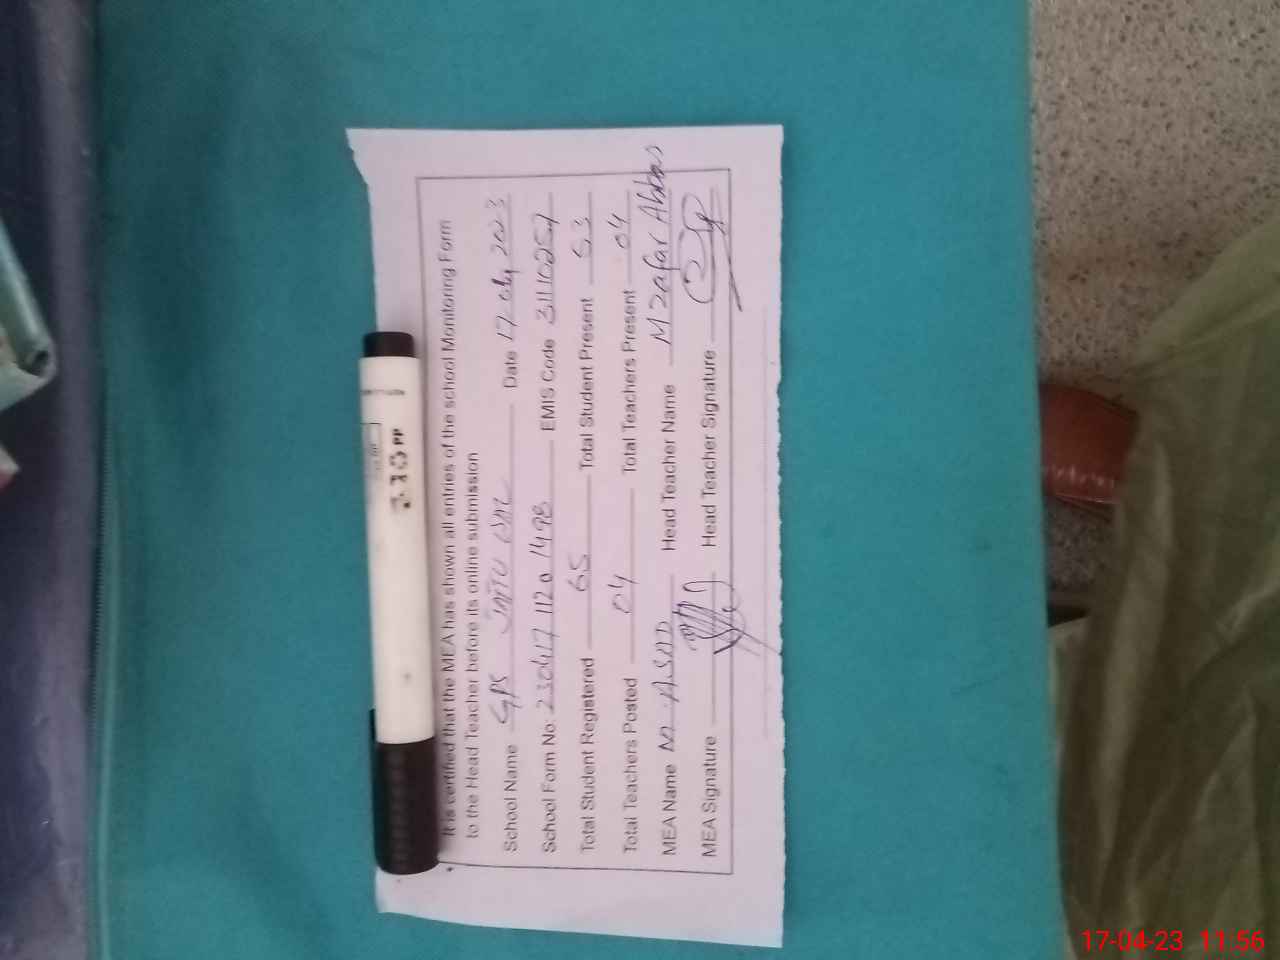 It is certified that the MEA has shown all entries of the school Monitoring Form
to the Head Teacher before its online submission
School Name GPS JAITU Date 17-04-2023
School Form No: 230417 1120 1498 EMIS Code 31110257
Total Student Registered 65 Total Student Present 53
Total Teachers Posted 04 Total Teachers Present 04
MEA Name M. ASAD Head Teacher Name M Zafar Abbas
MEA Signature Head Teacher Signature
17-04-23 11:56